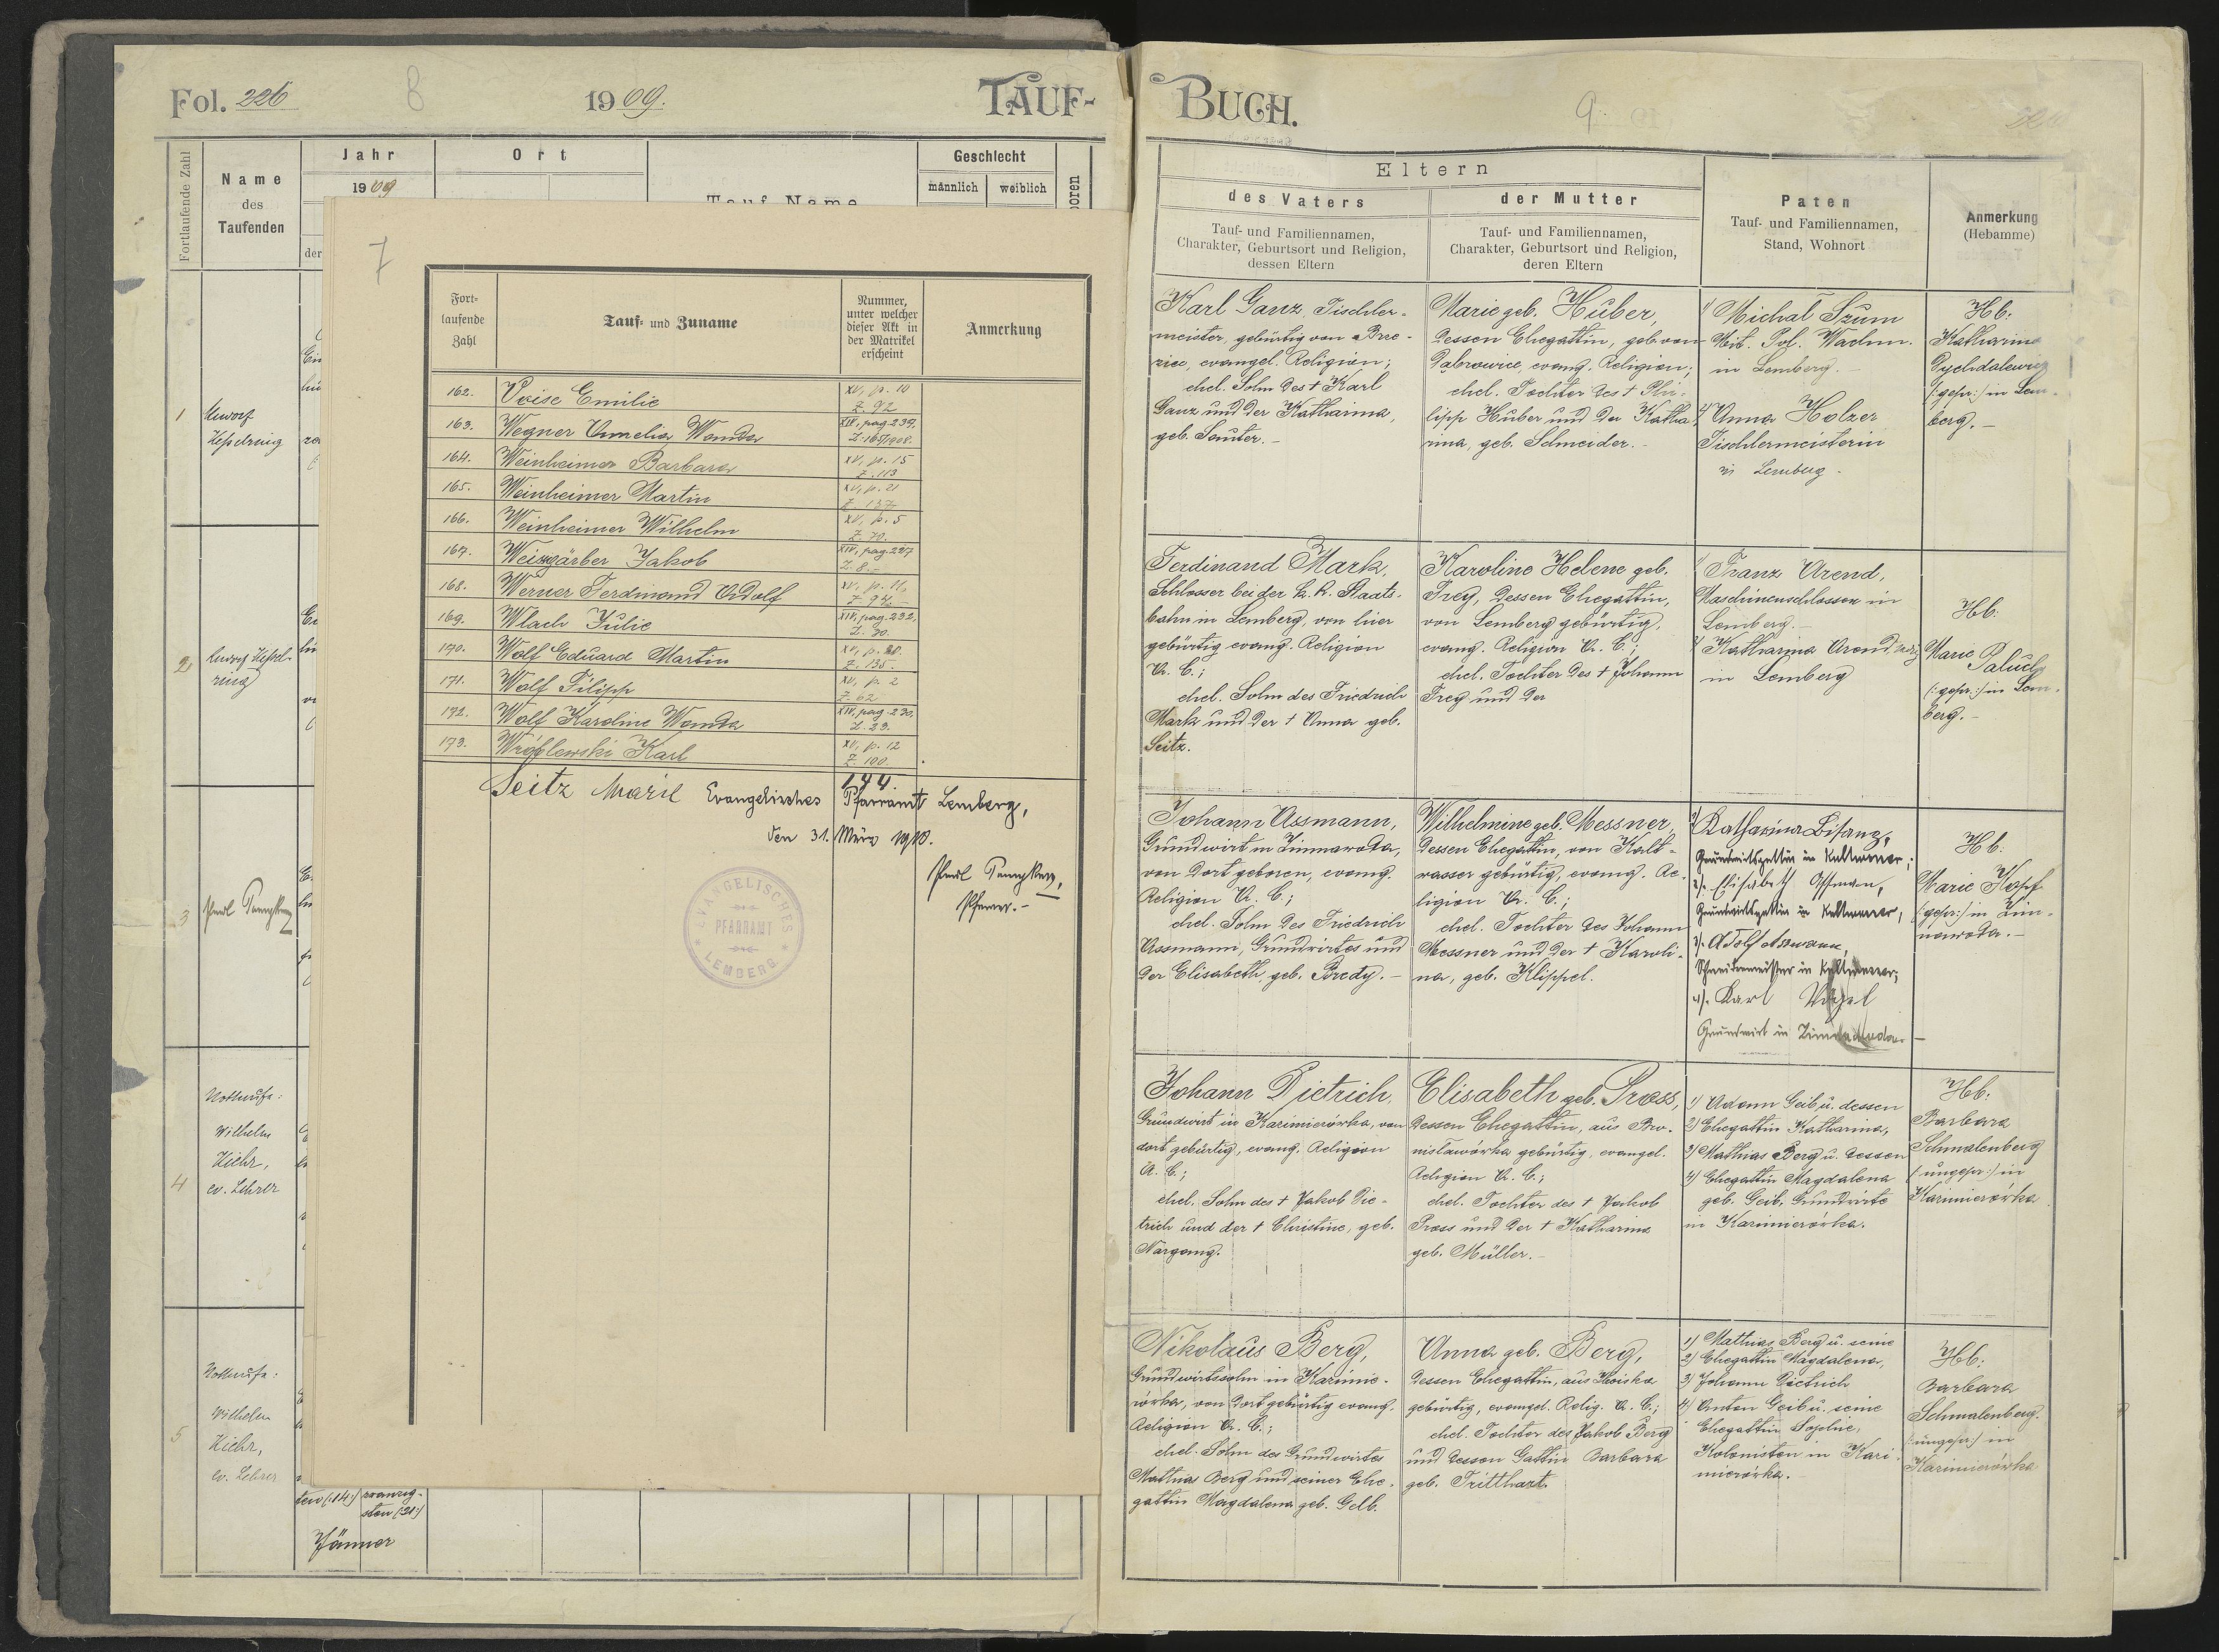 Fol. 226
8
1909.
TAUF-
Fortlaufende Zahl
Name
des
Taufenden
Jahr
1909
der
Ort
Tauf Name
Geschlecht
männlich
weiblich
1
Hesselring
2
3
4
Nottaufe:
Wilhelm
ev. Lehrer
5
Nottaufe:
Wilhelm
ev. Lehrer
ten (:14:)
zwanzig-
sten (:21:)
Jänner
7
Fort-
laufende
Zahl
Tauf- und Zuname
Nummer,
unter welcher
dieser Akt in
der Matrikel
erscheint
Anmerkung
162. Voise Emilie XV, p. 10
Z. 92
163. Wegner Amelia Wanda XIV, pag. 239,
Z. 165/1908.
164. Weinheimer Barbara XV, p. 15
Z. 113
165. Weinheimer Martin XV, p. 21
Z. 137
166. Weinheimer Wilhelm XV, p. 5
Z. 79.
167. Weisgärber Jakob XIV, pag. 227
Z. 8.-
168. Werner Ferdinand Adolf XV, p. 11,
Z. 94.
169. Wlach Julie XIV, pag. 232,
Z. 30.
170. Wolf Eduard Martin XV, p. 20.
Z. 135.
171. Wolf Filipp XV, p. 2
Z. 62
172. Wolf Karoline Wanda XIV, pag. 230,
Z. 23.
173. Wróblewski Karl XV, p. 12
Z. 100.
Seitz Marie 144
Evangelisches Pfarramt Lemberg,
den 31. März 1910.
Pfarrer.-
EVANGELISCHES
PFARRAMT
LEMBERG
BUCH.
9
Eltern
des Vaters
Tauf- und Familiennamen,
Charakter, Geburtsort und Religion,
dessen Eltern
der Mutter
Tauf- und Familiennamen,
Charakter, Geburtsort und Religion,
deren Eltern
Paten
Tauf- und Familiennamen,
Stand, Wohnort
Anmerkung
(Hebamme)
Karl Ganz, Tischler-
meister, gebürtig von
evangel. Religion;
ehel. Sohn des † Karl
Ganz und der Katharina,
geb. Sauter.-
Marie geb. Huber,
dessen Ehegattin, geb. von
Dąbrowice, evang. Religion;
ehel. Tochter des † Phi-
lipp Huber und der Katha-
rina, geb. Schneider.-
1) Michal Szum
Mit. Pol. Wachm.
in Lemberg.-
2) Anna Holzer
Tischlermeisterin
in Lemberg.
Hb:
Katharina
(:gepr:) in Lem-
berg.-
Ferdinand Mark,
Schlosser bei der k. k. Staats-
bahn in Lemberg, von hier
gebürtig evang. Religion
A. C.;
ehel. Sohn des Friedrich
Mark und der † Anna geb.
Seitz.
Karoline Helene geb.
Frey, dessen Ehegattin,
von Lemberg gebürtig,
evang. Religion A. C.;
ehel. Tochter des † Johann
Frey und der
1) Franz Arend,
Maschinenschlosser in
Lemberg.-
2) Katharina Arend
in Lemberg
Hb:
Marie
Paluch
(:gepr:) in Lem-
berg.-
Johann Assmann,
Grundwirt in Zimnawoda,
von dort geboren, evang.
Religion A. C.;
ehel. Sohn des Friedrich
Assmann, Grundwirtes und
der Elisabeth, geb. Bredy.-
Wilhelmine geb. Messner,
dessen Ehegattin, von Kalt-
wasser gebürtig, evang. Re-
ligion A. C.;
ehel. Tochter des Johann
Messner und der † Karoli-
na, geb. Klippel.
1) Katharina Bisanz,
Grundwirtsgattin in Kaltwasser;
2). Elisabeth Assmann,
Grundwirtsgattin in Kaltwasser,
3). Adolf Assmann,
Schneidermeister in Kaltwasser;
4). Karl
Grundwirt in Zimnawoda.-
Hb:
Marie Hopf
(:gepr:) in Zim-
nawoda.-
Johann Dietrich,
Grundwirt in Kazimierówka, von
dort gebürtig, evang. Religion
A. C.;
ehel. Sohn des † Jakob Die-
trich und der † Christine, geb.
Nargang.
Elisabeth geb. Pross,
dessen Ehegattin, aus Bro-
nisławówka gebürtig, evangel.
Religion A. C.;
ehel. Tochter des † Jakob
Pross und der † Katharina
geb. Müller.-
1) Adam Geib u. dessen
2) Ehegattin Katharina,
3) Mathias Berg u. dessen
4) Ehegattin Magdalena
geb. Geib, Grundwirte
in Kazimierówka.
Hb:
Barbara
Schmalenberg
(:ungepr:) in
Kazimierówka
Nikolaus Berg,
Grundwirtssohn in Kazimie-
rówka, von dort gebürtig evang.
Religion A. C.;
ehel. Sohn des Grundwirtes
Mathias Berg und seiner Ehe-
gattin Magdalena geb. Geib.
Anna geb. Berg,
dessen Ehegattin, aus Hoiska
gebürtig, evangel. Relig. A. C.;
ehel. Tochter des Jakob Berg
und dessen Gattin Barbara
geb. Tritthart.
1) Mathias Berg u. seine
2) Ehegattin Magdalena,
3) Johann Dietrich
4) Anton Geib u. seine
Ehegattin Sophie,
Kolonisten in Kazi-
mierówka.-
Hb:
Barbara
Schmalenberg.
(:ungepr:) in
Kazimierówka